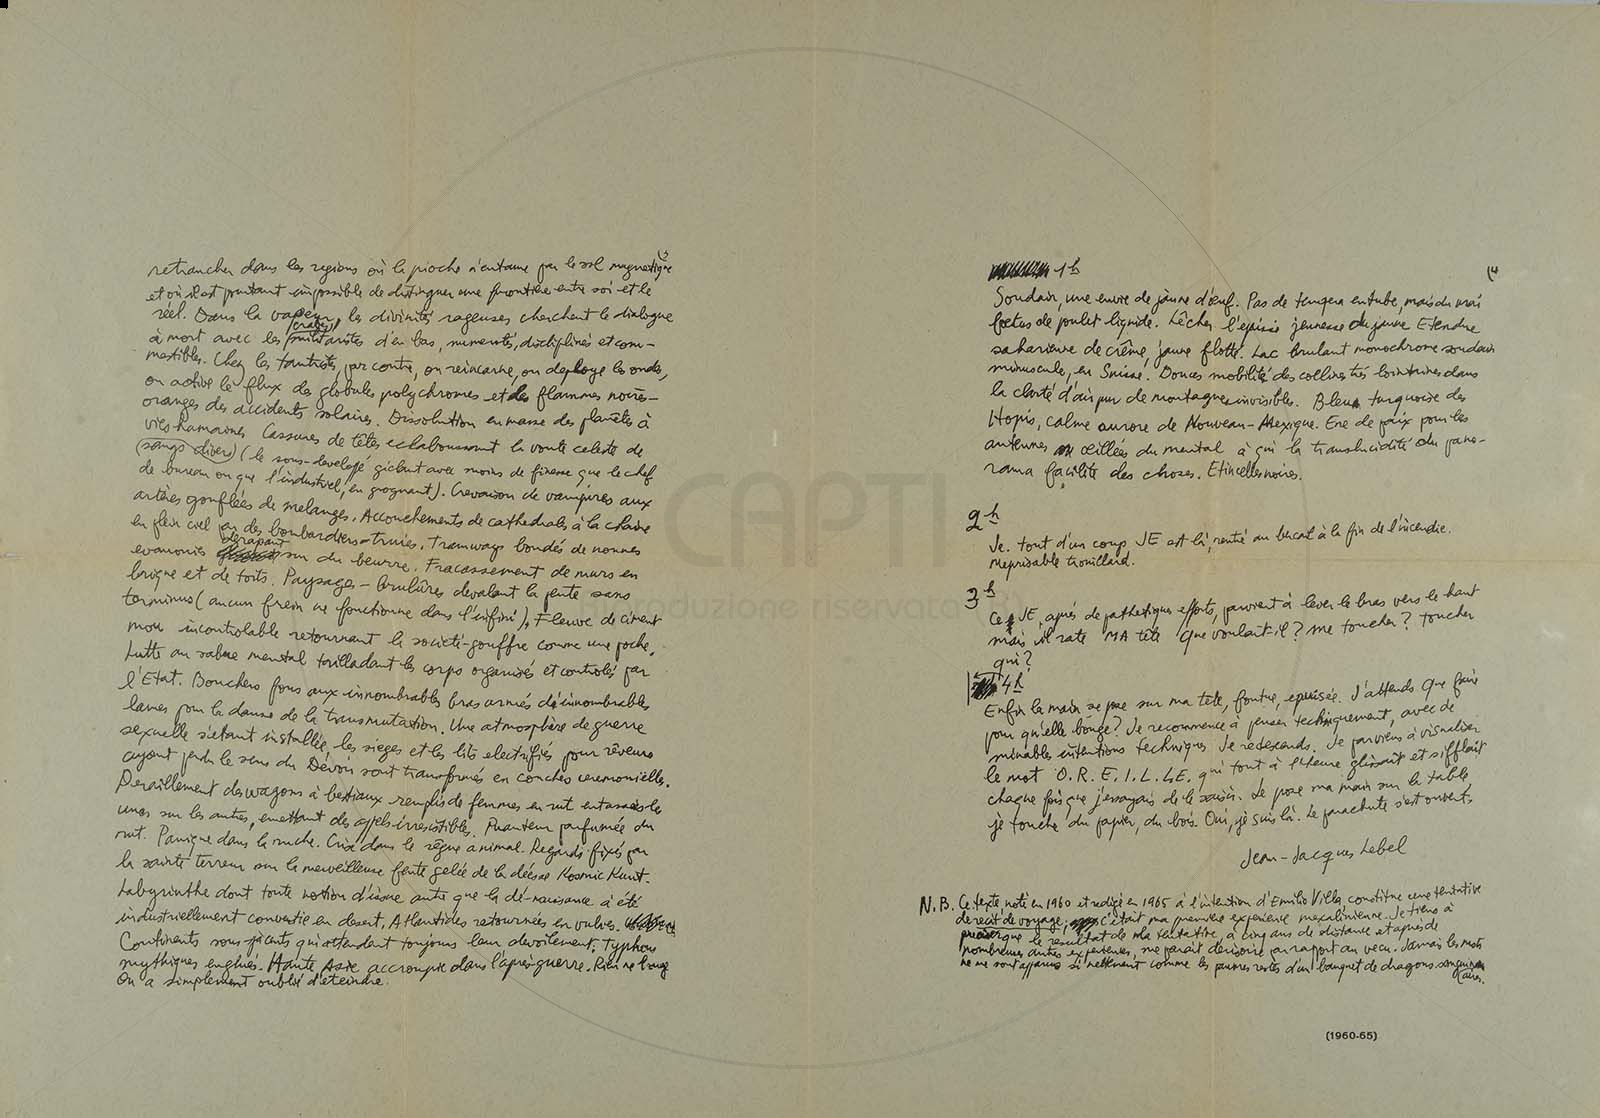 retrancher dans les regions où la pioche n'entame pas le sol magnetique
et où il est pourtant impossible de distinguer une frontière entre soi et le
réel. Dans la vapeur, les divinités rageuses cherchent le dialogue
à mort avec les militaristes d'en bas, numerotés, disciplinés et com-
mestibles. Chez les tantristes, par contre, on reincarne, on deploye les ondes,
on active le flux des globules polychromes et des flammes noires-
oranges des accidents solaires. Dissolution en masse des planètes à
vies humaines Cassures de têtes eclaboussant la voute celeste de
(sangs divers) (le sous-developpé giclant avec moins de finesse que le chef
de bureau ou que l'industriel, en grognant). Crevaison de vampires aux
artères gonflées de melanges. Accouchements de cathedrales à la chaine
en plein ciel par des bombardiers-truies. Tramways bondés de nonnes
evanouies derapant sur du beurre. Fracassement de murs en
brique et de toits. Paysages-brulûres devalant la pente sans
terminus (aucun frein ne fonctionne dans l'infini). Fleuve de ciment
mou incontrolable retournant la societé-gouffre comme une poche.
Lutte au sabre mental taillant les corps organisés et controlés par
l'Etat. Bouchers fous aux innombrables bras armés d'innombrables
lames pour la danse de la transmutation. Une atmosphère de guerre
sexuelle s'étant installée, les sieges et les lits electrifiés pour rêveurs
ayant perdu le sens du Devoir sont transformés en couches ceremonielles.
Deraillement des wagons à bestiaux remplis de femmes en rut entassées les
unes sur les autres, emettant des appels irresistibles. Puanteur parfumée du
rut. Panique dans la ruche. Crise dans le règne animal. Regards fixés par
la sainte terreur sur la merveilleuse fente gelée de la déesse Kosmic Kunt.
Labyrinthe dont toute notion d'issue autre que la dé-naissance a été
industriellement convertie en desert. Atlantides retournées en vulves.
Continents sous-jacents qui attendent toujours leur devoilement. Typhons
mythiques englués. Haute Asie accroupie dans l'après-guerre. Rien ne bouge
On a simplement oublié d'éteindre.
(4
1 h
Soudain, une envie de jaune d'œuf. Pas de tempera en tube, mais du vrai
foetus de poulet liquide. Lêcher l'epaisse jeunesse du jaune Etendue
saharienne de crême, jaune flotté. Lac brulant monochrome soudain
minuscule, en Suisse. Douces mobilités des collines très lointaines dans
la clarté d'air pur de montagnes invisibles. Bleu turquoise des
Hopis, calme aurore de Nouveau-Mexique. Ere de paix pour les
antennes œillées du mental à qui la translucidité du pano-
rama facilite des choses. Etincelles noires.
2 h
Je. tout d'un coup JE est là, rentré au bercail à la fin de l'incendie.
Meprisable trouillard.
3 h
Ce JE, après de pathetiques efforts, parvient à lever le bras vers le haut
mais il rate MA tête Que voulait-il? me toucher? toucher
qui?
4 h
Enfin la main se pose sur ma tete, foutue, epuisée. J'attends Que faire
pour qu'elle bouge? Je recommence à penser techniquement, avec de
minables intentions techniques Je redescends. Je parviens à visualiser
le mot O.R.E.I.L.LE. qui tout à l'heure glissait et sifflait
chaque fois que j'essayais de le saisir. Je pose ma main sur la table
je touche du papier, du bois. Oui, je suis là. Le parachute s'est ouvert.
Jean-Jacques Lebel
N.B. Ce texte noté en 1960 et redigé en 1965 à l'intention d'Emilio Villa, constitue une tentative
de recit de voyage; c'était ma première experience mescalinienne. Je tiens à
preciser que le resultat de ma tentative, à cinq ans de distance et après de
nombreuses autres experiences, me parait derisoire par rapport au vecu. Jamais les mots
ne me sont apparus si nettement comme les pauvres restes d'un banquet de dragons sanguin-
aires.
(1960-65)
CAPTI
riproduzione riservata